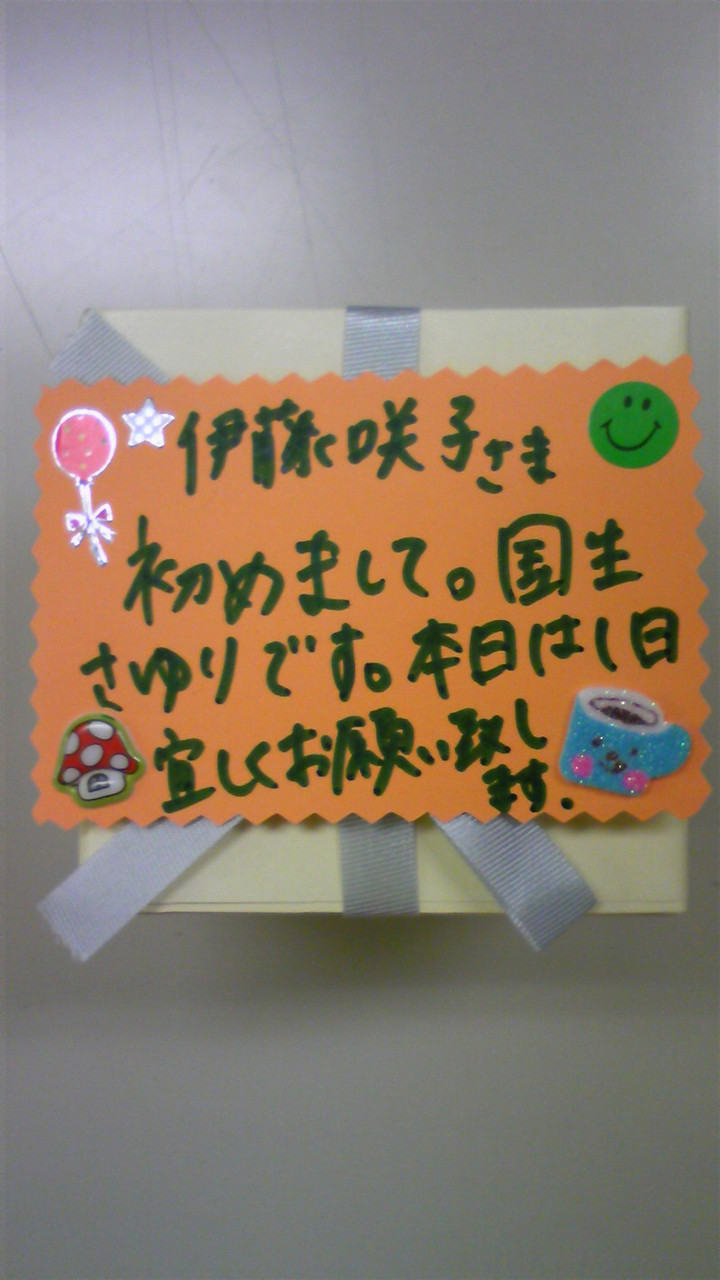 伊藤咲子さま
初めまして。国生
さゆりです。本日は1日
宜しくお願い致し
ます.